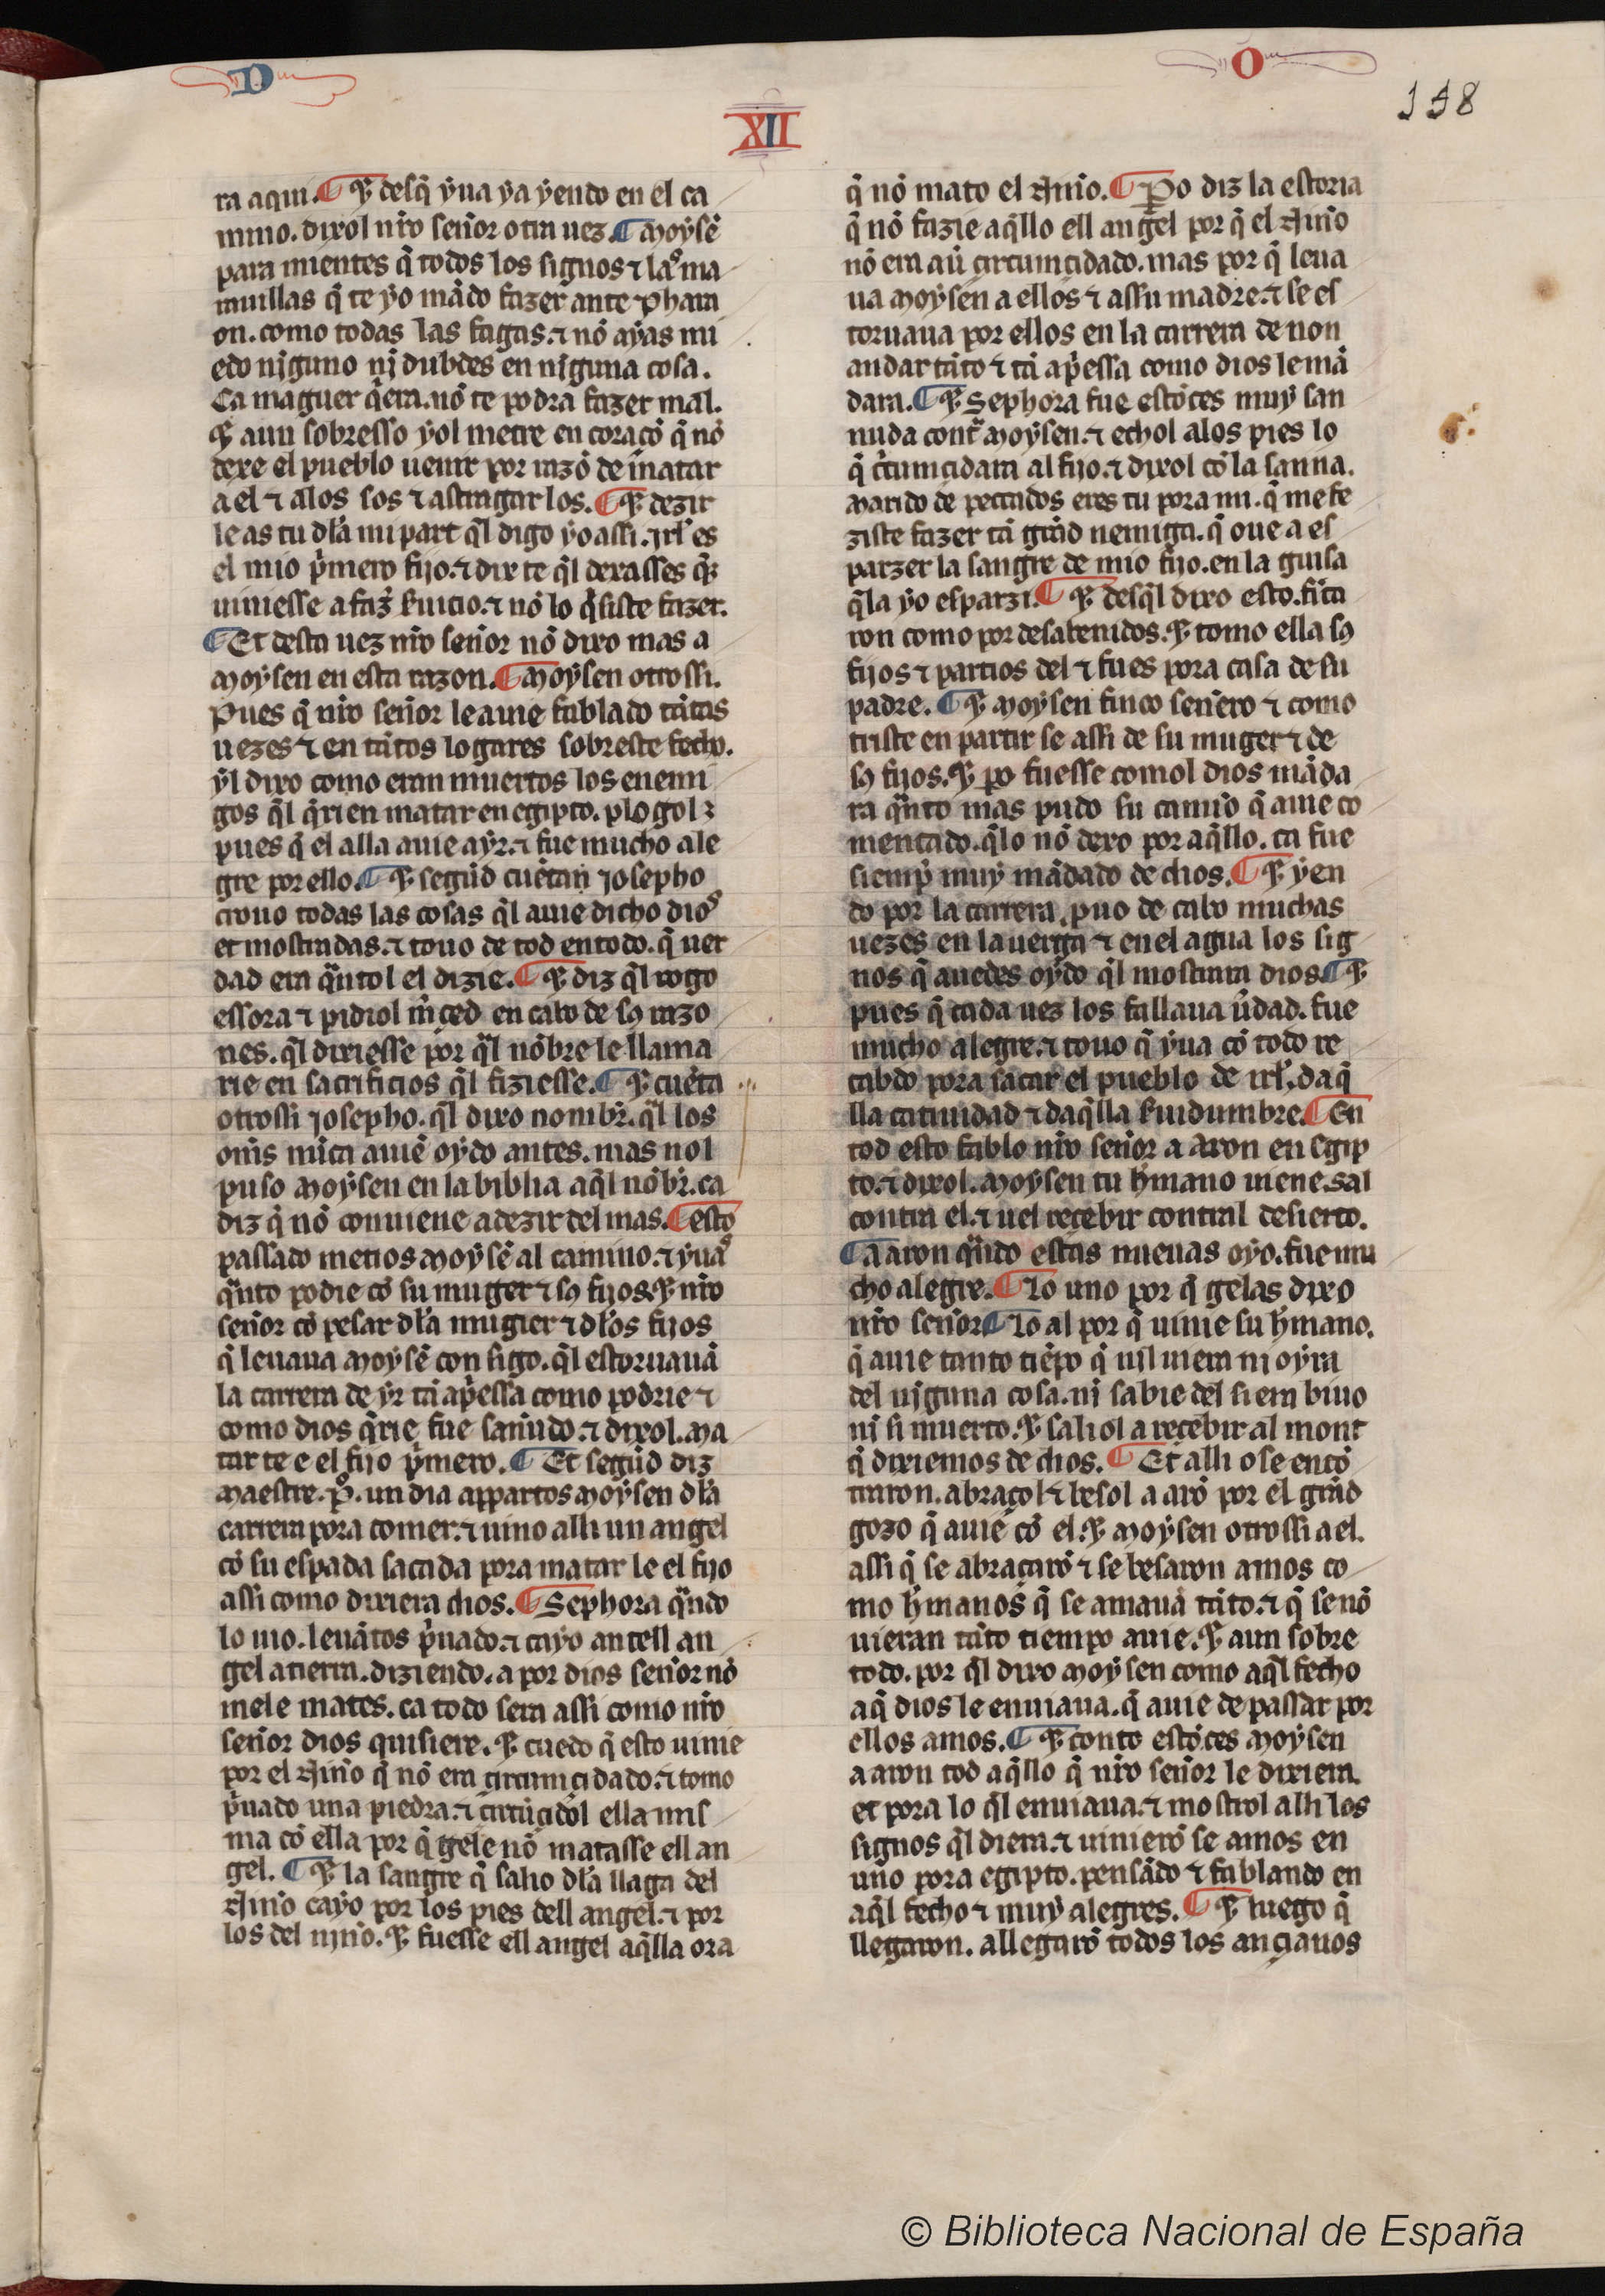 D
O
158
XII
ra aqui. ¶ ⁊ desq̃ yua ya yendo en el ca
mino. dixol nr̃o sen̄or otra uez. ¶ Moysẽ
para mientes q̃ todos los signos ⁊ las ma
rauillas q̃ te yo mãdo fazer ante pharа
on. como todas las fagas. ⁊ nõ ayas mi
edo niguno ni dubdes en niguna cosa.
Ca maguer q̃era. nõ te podra fazer mal.
⁊ aun sobresso yol metre en coraçõ q̃ nõ
dexe el pueblo uenir por razõ de matar
a el ⁊ alos sos ⁊ astragar los. ¶ ⁊ dezir
le as tu dla mi part q̃l digo yo assi. irl̃ es
el mio p̃mero fijo. ⁊ dix te q̃l dexasses q̃
uiniesse a faz̃ seruicio. ⁊ nõ lo q̃siste fazer.
¶ Et desta uez nr̃o sen̄or nõ dixo mas a
Moysen en esta razon. ¶ Moysen otrossi.
Pues q̃ nr̃o sen̄or le auie fablado tãtas
uezes ⁊ en tãtos logares sobreste fecho.
yl dixo como eran muertos los enemi
gos q̃l q̃rien matar en egipto. plogol
pues q̃ el alla auie a yr. ⁊ fue mucho ale
gre por ello. ¶ ⁊ segũd cuẽtan iosepho
crouo todas las cosas q̃l auie dicho dios
et mostradas. ⁊ touo de tod en todo. q̃ uer
dad era q̃ntol el dizie. ¶ ⁊ diz q̃l rogo
essora ⁊ pidiol m̃ced en cabo de sꝯ razo
nes. q̃l dixiesse por q̃l nõbre le llama
rie en sacrificios q̃l fiziesse. ¶ ⁊ cuẽta
otrossi iosepho. q̃l dixo nombr̃. q̃l los
om̃s nũca auiẽ oydo antes. mas nol
puso Moysen en la biblia aq̃l nõbr̃. ca
diz q̃ nõ conuiene a dezir del mas. ¶ esto
passado metios Moysẽ al camino. ⁊ yuas
q̃nto podie cõ su muger ⁊ sꝯ fijos. ⁊ nr̃o
sen̄or cõ pesar dla mugier ⁊ dlos fijos
q̃ leuaua Moysẽ consigo. q̃l estoruauã
la carrera de yr tã ap̃essa como podrie ⁊
como dios q̃rie fue san̄udo. ⁊ dixol. Ma
tar te e el fijo p̃mero. ¶ Et segũd diz
Maestre. P̊. un dia appartos Moysen dla
carrera pora comer. ⁊ uino alli un angel
cõ su espada sacada pora matar le el fijo
assi como dixiera dios. ¶ Sephora q̃ndo
lo uio. leuãtos p̃uado. ⁊ cayo antell an
gel a tierra. diziendo. a por dios sen̄or nõ
mele mates. ca todo sera assi como nr̃o
sen̄or dios quisiere. ⁊ cuedo q̃ esto uinie
por el nin̄o q̃ nõ era circumcidado. ⁊ tomo
p̃uado una piedra. ⁊ circũcidol ella mis
ma cõ ella por q̃ gele nõ matasse ell an
gel. ¶ ⁊ la sangre q̃ salio dla llaga del
nin̄o cayo por los pies dell angel. ⁊ por
los del nin̄o. ⁊ fuesse ell angel aq̃lla ora
q̃ nõ mato el nin̄o. ¶ Pero diz la estoria
q̃ nõ fazie aq̃llo ell angel por q̃ el nin̄o
nõ era aũ circumcidado. mas por q̃ leua
ua Moysen a ellos ⁊ assu madre. ⁊ se es
toruaua por ellos en la carrera de non
andar tãto ⁊ tã ap̃essa como dios le mã
dara. ¶ ⁊ Sephora fue estõces muy san
nuda contra Moysen. ⁊ echol alos pies lo
q̃ c̃cumcidara al fijo. ⁊ dixol cõ la sanna.
Marido de peccados eres tu pora mi. q̃ me fe
ziste fazer tã grãd nemiga. q̃ oue a es
parzer la sangre de mio fijo. en la guisa
q̃ la yo esparzi. ¶ ⁊ desq̃l dixo esto. fica
ron como por desabenidos. ⁊ tomo ella sꝯ
fijos ⁊ partios del ⁊ fues pora casa de su
padre. ¶ ⁊ Moysen finco sen̄ero ⁊ como
triste en partir se assi de su muger ⁊ de
sꝯ fijos. ⁊ pero fuesse comol dios mãda
ra q̃nto mas pudo su camino q̃ auie co
mençado. q̃ lo nõ dexo por aq̃llo. ca fue
siemp̃ muy mãdado de dios. ¶ ⁊ yen
do por la carrera. puo de cabo muchas
uezes en la uerga ⁊ en el agua los sig
nos q̃ auedes oydo q̃l mostrara dios. ¶ ⁊
pues q̃ cada uez los fallaua ũdad. fue
mucho alegre. ⁊ touo q̃ yua cõ todo re
cabdo pora sacar el pueblo de irl̃. daq̃
lla catiuidad ⁊ daq̃lla seruidumbre. ¶ En
tod esto fablo nr̃o sen̄or a Aron en egip
to. ⁊ dixol. Moysen tu h̃mano uiene. sal
contra el. ⁊ uel recebir contral desierto.
¶ Aaron q̃ndo estas nueuas oyo. fue mu
cho alegre. ¶ Lo uno por q̃ gelas dixo
nr̃o sen̄or. ¶ Lo al por q̃ uinie su h̃mano.
q̃ auie tanto tiẽpo q̃ nil uiera ni oyra
del niguna cosa. ni sabie del si era biuo
ni si muerto. ⁊ saliol a recebir al mont
q̃ dixiemos de dios. ¶ Et alli o se encõ
traron. abraçol ⁊ besol a arõ por el grãd
gozo q̃ auiẽ cõ el. ⁊ Moysen otrossi a el.
assi q̃ se abraçarõ ⁊ se besaron amos co
mo h̃manos q̃ se amauã tãto. ⁊ q̃ se nõ
uieran tãto tiempo auie. ⁊ aun sobre
todo. por q̃l dixo Moysen como aq̃l fecho
a q̃ dios le enuiaua. q̃ auie de passar por
ellos amos. ¶ ⁊ conto estõces Moysen
a aron tod aq̃llo q̃ nr̃o sen̄or le dixiera.
et pora lo q̃l enuiaua. ⁊ mostrol alli los
signos q̃l diera. ⁊ uinierõ se amos en
uno pora egipto. pensãdo ⁊ fablando en
aq̃l fecho ⁊ muy alegres. ¶ ⁊ luego q̃
llegaron. allegarõ todos los ancianos
© Biblioteca Nacional de España